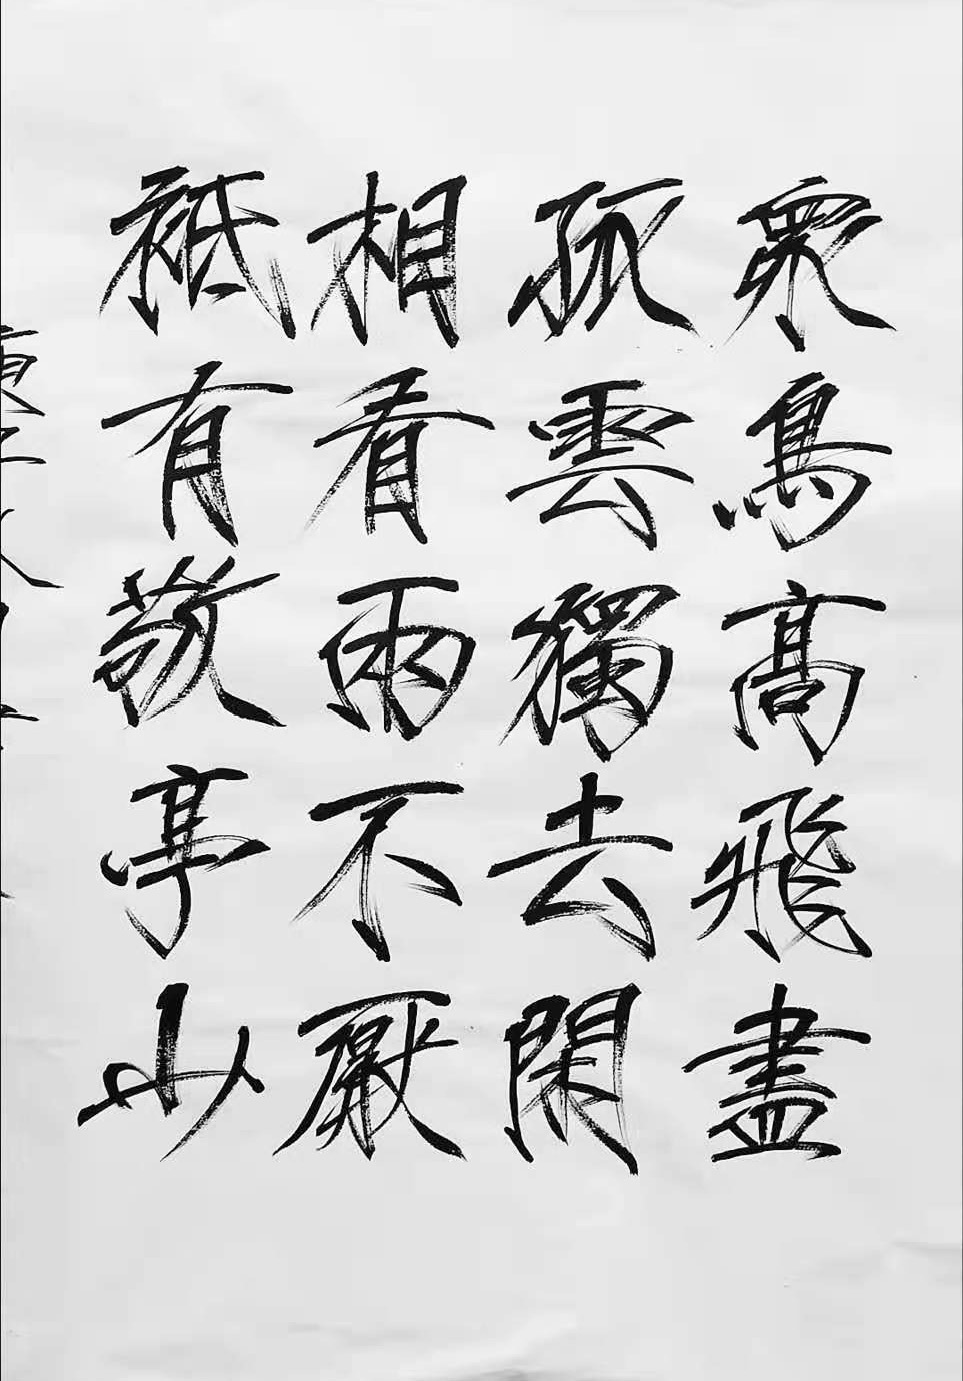 衆鳥高飛盡
孤雲獨去閑
相看兩不厭
祗有敬亭山